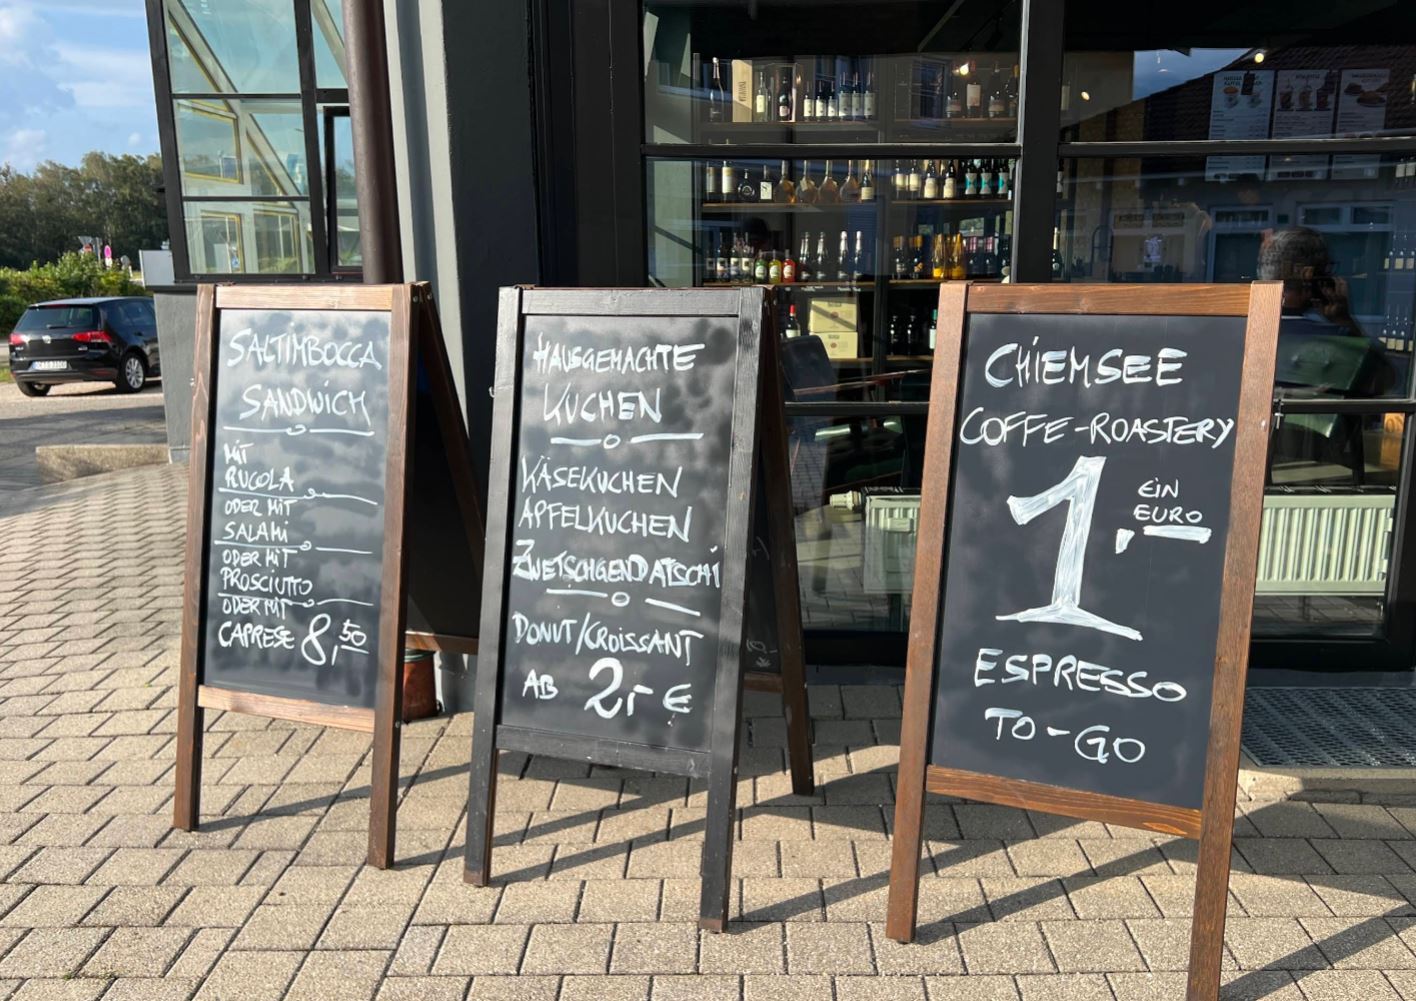 SALTIMBOCCA
SANDWICH
MIT
RUCOLA
ODER MIT
SALAMI
ODER MIT
PROSCIUTTO
ODER MIT
CAPRESE 8,50
HAUSGEMACHTE
KUCHEN
KÄSEKUCHEN
APFELKUCHEN
ZWETSCHGENDATSCHI
DONUT/CROISSANT
AB 2,- €
CHIEMSEE
COFFE-ROASTERY
1,-
EIN
EURO
ESPRESSO
TO-GO